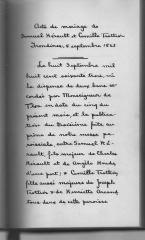 Acte de mariage de
Samuel Hérault et Camille Trottier
Trombines, 8 septembre 1863
Le huit Septembre mil
huit cent soixante trois, vu
la dispense de deux bans ac-
cordée par Monseigneur de
Tloa en date du cinq du
présent mois, et la publica-
tion du troisième faite au
prône de notre messe pa-
roissiale, entre Samuel Hé-
rault, fils majeur de Charles
Hérault et de Angèle
d'une part; & Camille Trottier,
fille aussi majeure de Joseph
Trottier & de Henriette
tous deux de cette paroisse